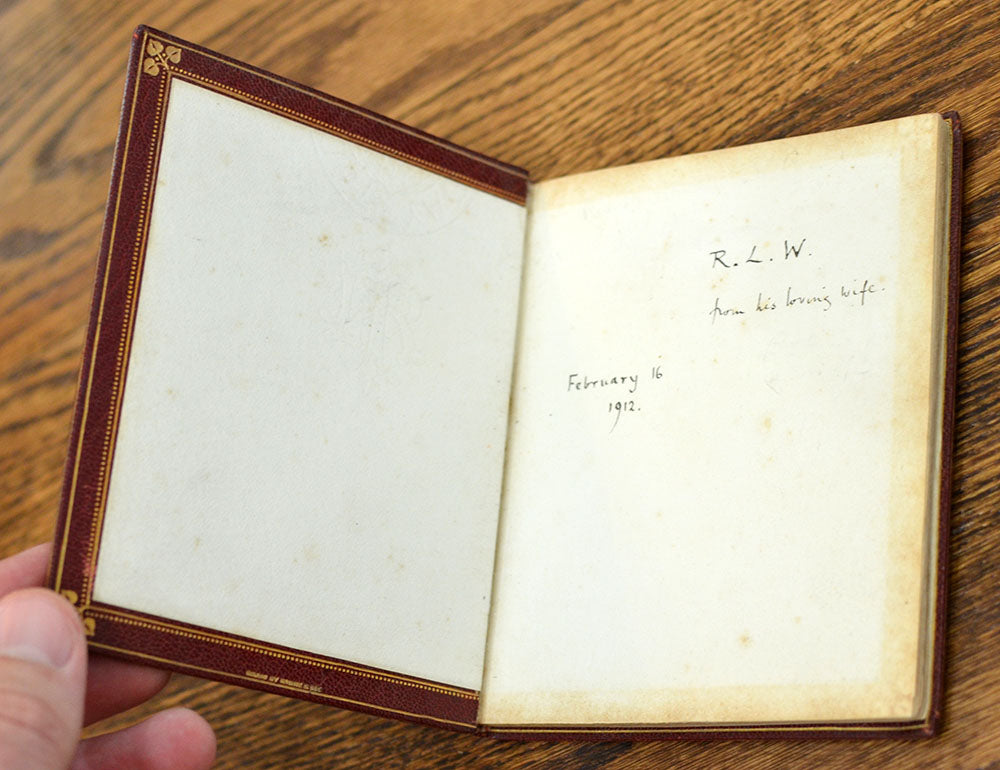 R. L. W.
from his loving wife.
February 16
1912.